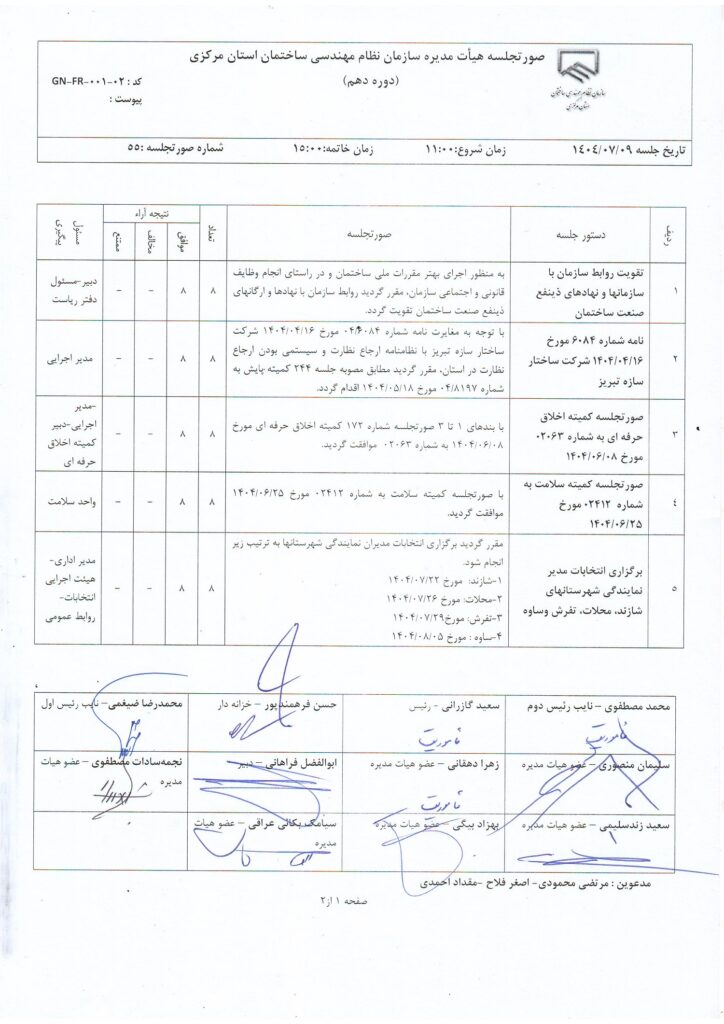 صورتجلسه هیأت مدیره سازمان نظام مهندسی ساختمان استان مرکزی
(دوره دهم)
کد : GN-FR-۰۰۱-۰۲
پیوست :
سازمان نظام مهندسی ساختمان
استان مرکزی
تاریخ جلسه ۱۴۰۴/۰۷/۰۹
زمان شروع:۱۱:۰۰
زمان خاتمه:۱۵:۰۰
شماره صورتجلسه :۵۵
ردیف
دستور جلسه
صورتجلسه
تعداد
نتیجه آراء
موافق
مخالف
ممتنع
مسئول
پیگیری
۱
تقویت روابط سازمان با
سازمانها و نهادهای ذینفع
صنعت ساختمان
به منظور اجرای بهتر مقررات ملی ساختمان و در راستای انجام وظایف
قانونی و اجتماعی سازمان، مقرر گردید روابط سازمان با نهادها و ارگانهای
ذینفع صنعت ساختمان تقویت گردد.
۸
۸
–
–
دبیر-مسئول
دفتر ریاست
۲
نامه شماره ۶۰۸۴ مورخ
۱۴۰۴/۰۴/۱۶ شرکت ساختار
سازه تبریز
با توجه به مغایرت نامه شماره ۰۴/۶۰۸۴ مورخ ۱۴۰۴/۰۴/۱۶ شرکت
ساختار سازه تبریز با نظامنامه ارجاع نظارت و سیستمی بودن ارجاع
نظارت در استان، مقرر گردید مطابق مصوبه جلسه ۲۴۴ کمیته پایش به
شماره ۰۴/۸۱۹۷ مورخ ۱۴۰۴/۰۵/۱۸ اقدام گردد.
۸
۸
–
–
مدیر اجرایی
۳
صورتجلسه کمیته اخلاق
حرفه ای به شماره ۰۲۰۶۳
مورخ ۱۴۰۴/۰۶/۰۸
با بندهای ۱ تا ۳ صورتجلسه شماره ۱۷۲ کمیته اخلاق حرفه ای مورخ
۱۴۰۴/۰۶/۰۸ به شماره ۰۲۰۶۳ موافقت گردید.
۸
۸
–
–
-مدیر
اجرایی-دبیر
کمیته اخلاق
حرفه ای
۴
صورتجلسه کمیته سلامت به
شماره ۰۲۴۱۲ مورخ
۱۴۰۴/۰۶/۲۵
با صورتجلسه کمیته سلامت به شماره ۰۲۴۱۲ مورخ ۱۴۰۴/۰۶/۲۵
موافقت گردید.
۸
۸
–
–
واحد سلامت
۵
برگزاری انتخابات مدیر
نمایندگی شهرستانهای
شازند، محلات، تفرش وساوه
مقرر گردید برگزاری انتخابات مدیران نمایندگی شهرستانها به ترتیب زیر
انجام شود.
۱-شازند: مورخ ۱۴۰۴/۰۷/۲۲
۲-محلات: مورخ ۱۴۰۴/۰۷/۲۶
۳-تفرش: مورخ۱۴۰۴/۰۷/۲۹
۴-ساوه : مورخ ۱۴۰۴/۰۸/۰۵
۸
۸
–
–
مدیر اداری-
هیئت اجرایی
انتخابات-
روابط عمومی
محمد مصطفوی – نایب رئیس دوم
سعید گازرانی - رئیس
حسن فرهمندپور – خزانه دار
محمدرضا ضیغمی– نایب رئیس اول
ماموریت
ماموریت
سلیمان منصوری – عضو هیات مدیره
زهرا دهقانی – عضو هیات مدیره
ابوالفضل فراهانی – دبیر
نجمه‌سادات مصطفوی – عضو هیات
مدیره
ماموریت
سعید زندسلیمی – عضو هیات مدیره
بهزاد بیگی – عضو هیات مدیره
سیامک یکانی عراقی – عضو هیات
مدیره
مدعوین : مرتضی محمودی- اصغر فلاح -مقداد احمدی
صفحه ۱ از۲